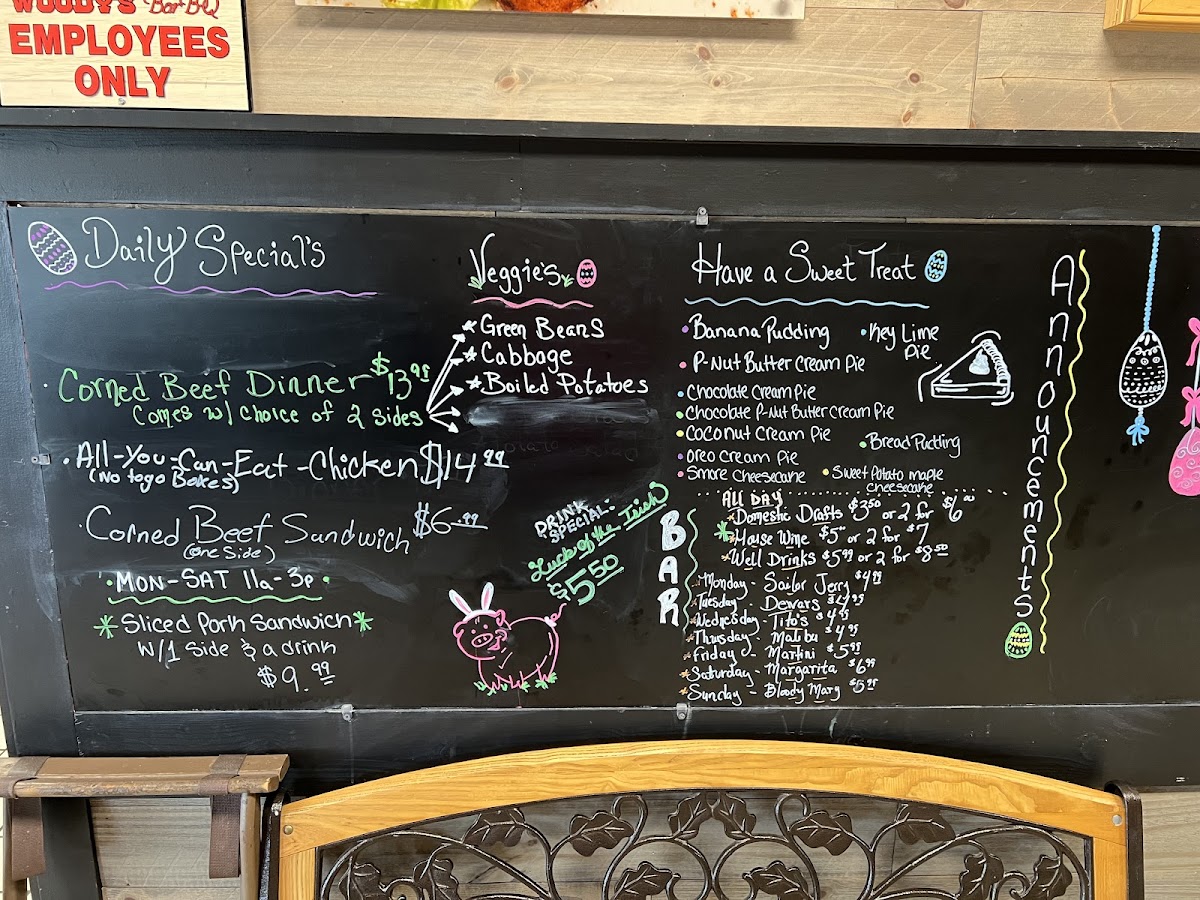 WOODY'S Bar-B-Q
EMPLOYEES
ONLY
Daily Special's
Corned Beef Dinner $13.95
Comes w/ choice of 2 sides
All-You-Can-Eat-Chicken $14.99
(No togo Boxes)
Corned Beef Sandwich $6.99
(one side)
MON-SAT 11a-3p
Sliced Pork Sandwich
w/1 side & a drink
$9.99
Veggie's
Green Beans
Cabbage
Boiled Potatoes
DRINK
SPECIAL:
Luck of the Irish
$5.50
Have a Sweet Treat
Banana Pudding
Key Lime
Pie
P-Nut Butter Cream Pie
Chocolate Cream Pie
Chocolate P-Nut Butter Cream Pie
Coconut Cream Pie
Bread Pudding
Oreo Cream Pie
Smore Cheesecake
Sweet Potato maple
cheesecake
BAR
ALL DAY
Domestic Drafts $3.50 or 2 for $6.00
House Wine $5.00 or 2 for $7
Well Drinks $5.99 or 2 for $8.50
Monday - Sailor Jerry $4.99
Tuesday - Dewars $4.95
Wednesday - Tito's $4.95
Thursday - Malibu $4.95
Friday - Martini $5.95
Saturday - Margarita $6.99
Sunday - Bloody Mary $5.95
Announcements